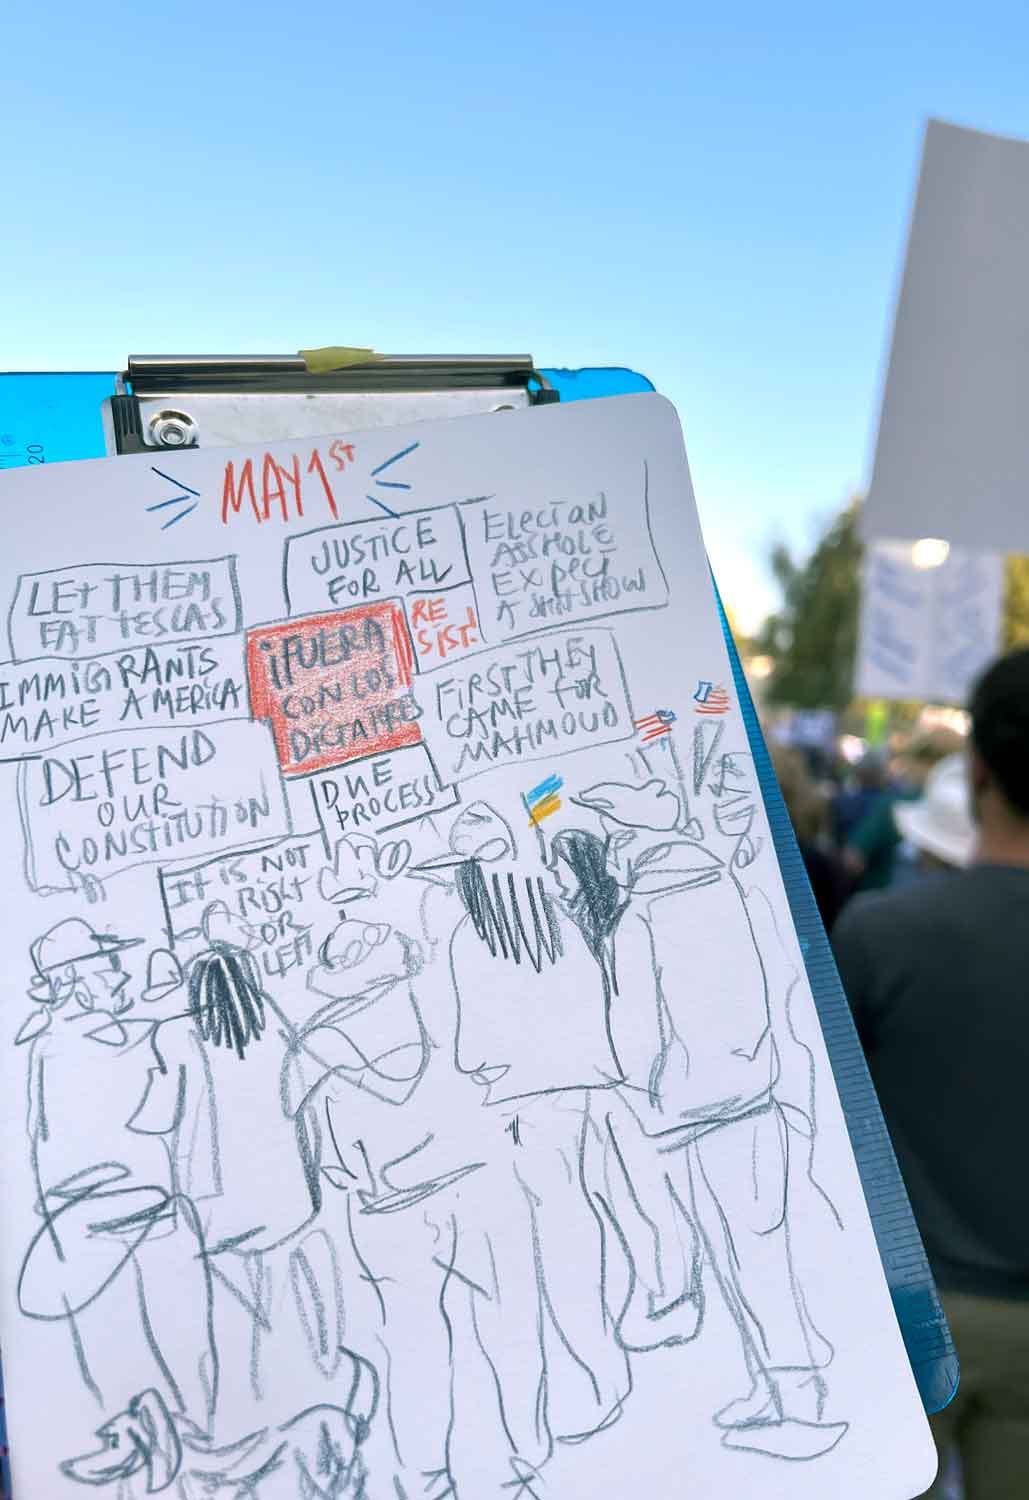 20
MAY 1ST
JUSTICE
FOR ALL
ELECT AN
ASSHOLE
EXPECT
A SHITSHOW
LET THEM
EAT TESLAS
¡FUERA
CON LOS
DICTADORES
RE
SIST!
IMMIGRANTS
MAKE AMERICA
FIRST THEY
CAME FOR
MAHMOUD
DEFEND
OUR
CONSTITUTION
DUE
PROCESS
IT IS NOT
RIGHT
OR
LEFT